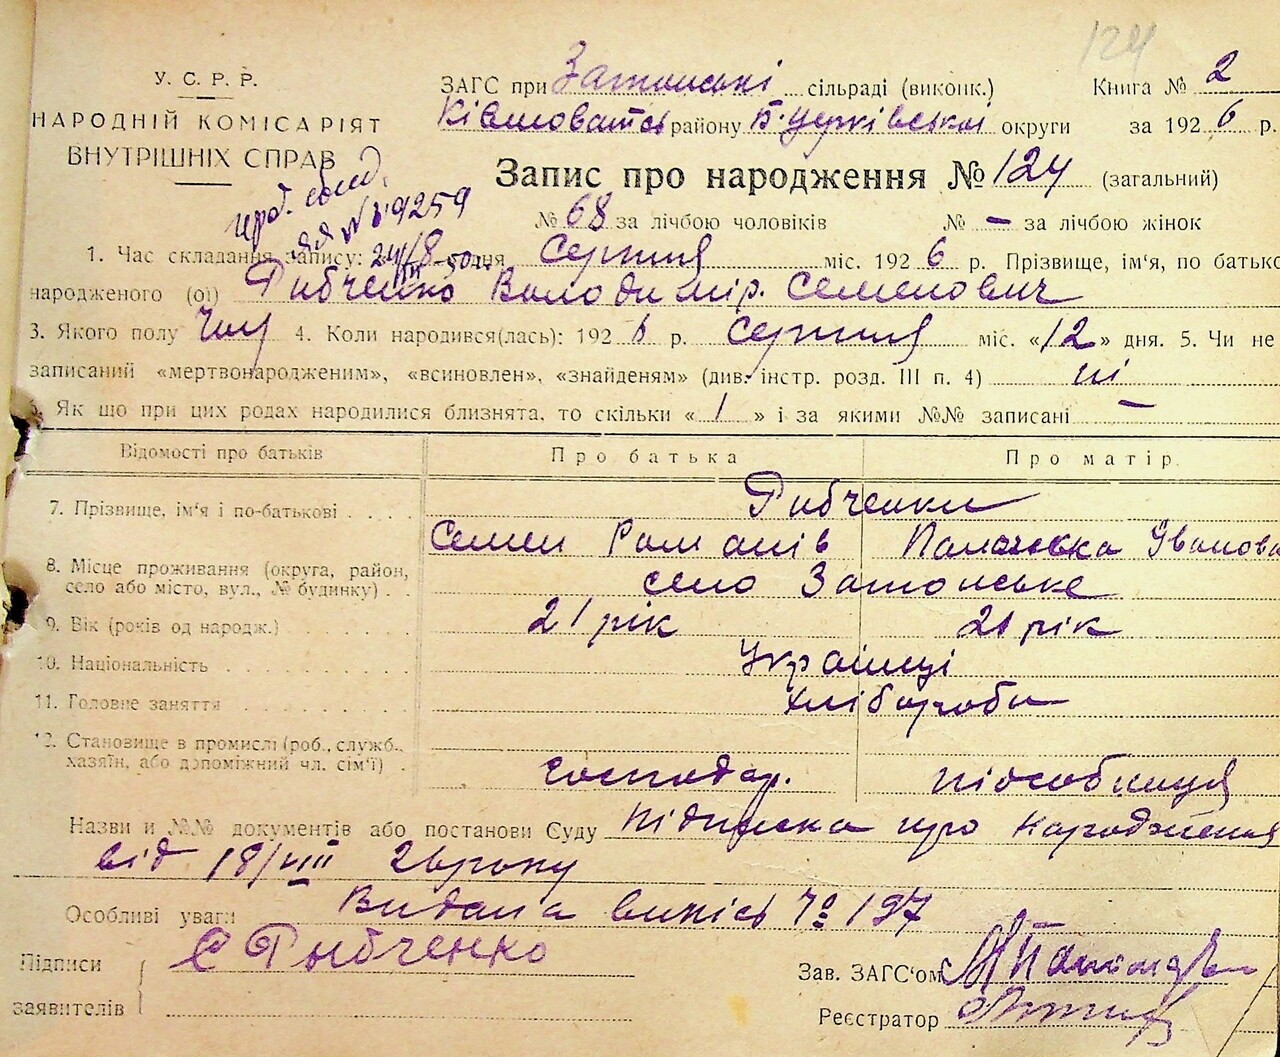 124
У. С. Р. Р.
НАРОДНІЙ КОМІСАРІЯТ
ВНУТРІШНІХ СПРАВ
ЗАГС при Затонські сільраді (виконк.) Книга № 2
району Б. Церківської округи за 1926 р.
Запис про народження № 124 (загальний)
№ 68 за лічбою чоловіків № – за лічбою жінок
1. Час складання запису: дня Серпня міс. 1926 р. Прізвище, ім'я, по батько
народженого (ої) Рибченко Володимір. Семенович
3. Якого полу Чол 4. Коли народився(лась): 1926 р. Серпня міс. «12» дня. 5. Чи не
записаний «мертвонародженим», «всиновлен», «знайденям» (див. інстр. розд. III п. 4) ні
6. Як що при цих родах народилися близнята, то скільки «1» і за якими №№ записані –
Відомості про батьків Про батька Про матір
7. Прізвище, ім'я і по-батькові Рибченки
Семен Романів Іванова
8. Місце проживання (округа, район,
село або місто, вул., № будинку) село Затонське
9. Вік (років од народж.) 21 рік 21 рік
10. Національність Українці
11. Головне заняття хлібороби
12. Становище в промислі (роб., служб.,
хазяїн, або допоміжний чл. сім'ї) господар. підсобниця
Назви и №№ документів або постанови Суду Підписка про народження
від 18/VIII 26 року
Особливі уваги Видана випісь № 197
Підписи С Рибченко
заявителів
Зав. ЗАГС'ом
Реєстратор